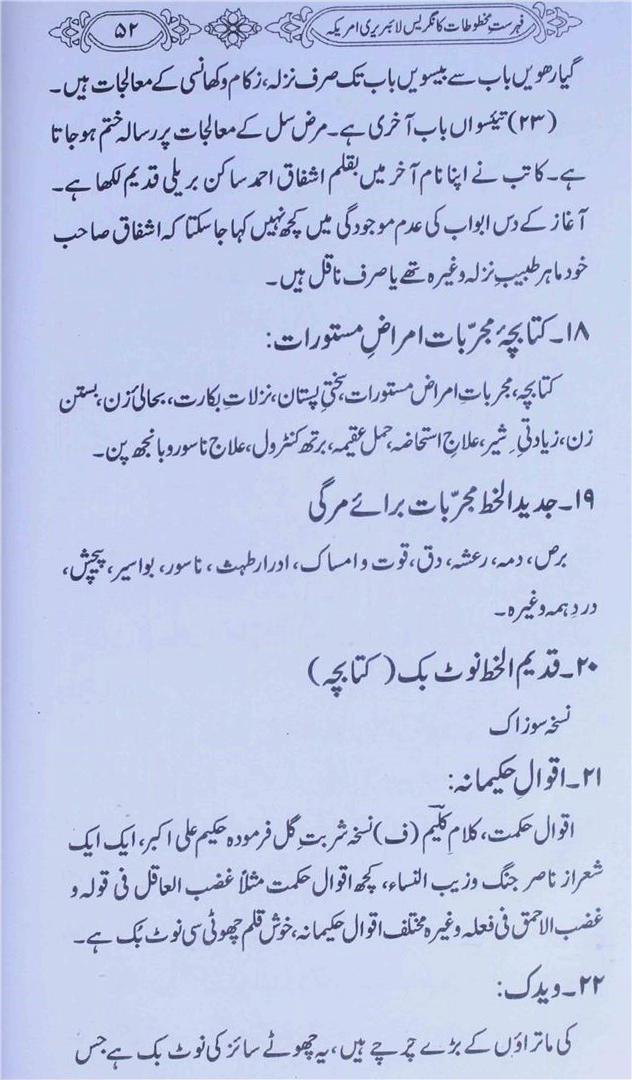 فہرستِ مخطوطات کانگریس لائبریری امریکہ
۵۲
گیارھویں باب سے بیسویں باب تک صرف نزلہ، زکام وکھانسی کے معالجات ہیں۔
(۲۳) تیئسواں باب آخری ہے۔ مرض سل کے معالجات پر رسالہ ختم ہوجاتا
ہے۔ کاتب نے اپنا نام آخر میں بقلم اشفاق احمد ساکن بریلی قدیم لکھا ہے۔
آغاز کے دس ابواب کی عدم موجودگی میں کچھ نہیں کہا جاسکتا کہ اشفاق صاحب
خود ماہر طبیبِ نزلہ وغیرہ تھے یا صرف ناقل ہیں۔
۱۸۔ کتابچۂ مجرّبات امراضِ مستورات:
کتابچہ، مجربات امراض مستورات، سختیِ پستان، نزلات بکارت، بحالیٔ زن، بستن
زن، زیادتیِ شیر، علاج استحاضہ، حمل عقیمہ، برتھ کنٹرول، علاج ناسور وبانجھ پن۔
۱۹۔ جدید الخط مجرّبات برائے مرگی
برص، دمہ، رعشہ، دق، قوت و امساک، ادرار طہث، ناسور، بواسیر، پیچش،
دردِہمہ وغیرہ۔
۲۰۔ قدیم الخط نوٹ بک (کتابچہ)
نسخہ سوزاک
۲۱۔ اقوالِ حکیمانہ:
اقوال حکمت، کلام کلیم (ف) نسخہ شربتِ گل فرمودہ حکیم علی اکبر، ایک ایک
شعر از ناصر جنگ وزیب النساء، کچھ اقوال حکمت مثلاً غضب العاقل فی قولہ و
غضب الاحمق فی فعلہ وغیرہ مختلف اقوال حکیمانہ، خوش قلم چھوٹی سی نوٹ بک ہے۔
۲۲۔ ویدک:
کی ماتراؤں کے بڑے چرچے ہیں، یہ چھوٹے سائز کی نوٹ بک ہے جس